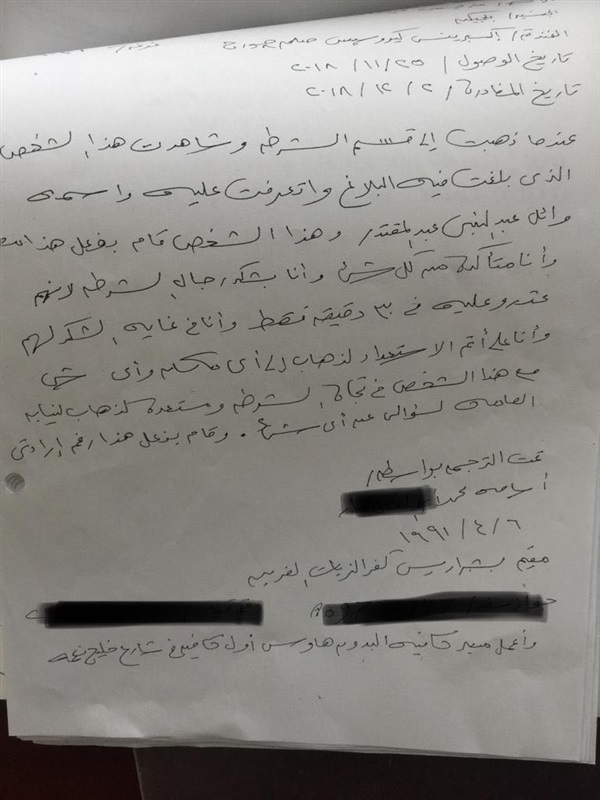 الجنسيه / بلجيكيه
الفندق /
تاريخ الوصول / ٢٥ / ١١ / ٢٠١٨
تاريخ المغادرة / ٢ / ١٢ / ٢٠١٨
عندما ذهبت إلى قسم الشرطه وشاهدت هذا الشخص
الذى بلغت فيه البلاغ واتعرفت عليه واسمه
وائل عبد النبى عبد المقتدر وهذا الشخص قام بفعل هذا
وأنا متأكده من كل شئ وأنا بشكور رجال الشرطه لانهم
عثرو عليه فى ٣٠ دقيقه فقط وأنا فى غايه الشكر لهم
وأنا على أتم الاستعداد لذهاب إلى أى محكمه وأى شئ
مع هذا الشخص فى تجاة الشرطه ومستعده لذهاب لنيابه
العامه لسؤالى عن أى شئ . وقام بفعل هذا رغم إرادتى
تمت الترجمه بواسطه /
أسامه محمد
٦ / ٤ / ١٩٩١
مقيم بشبراريس كفر الزيات الغربيه
وأعمل مدير كافيه البدوى هاوس أول كافيه فى شارع خليج نعمه